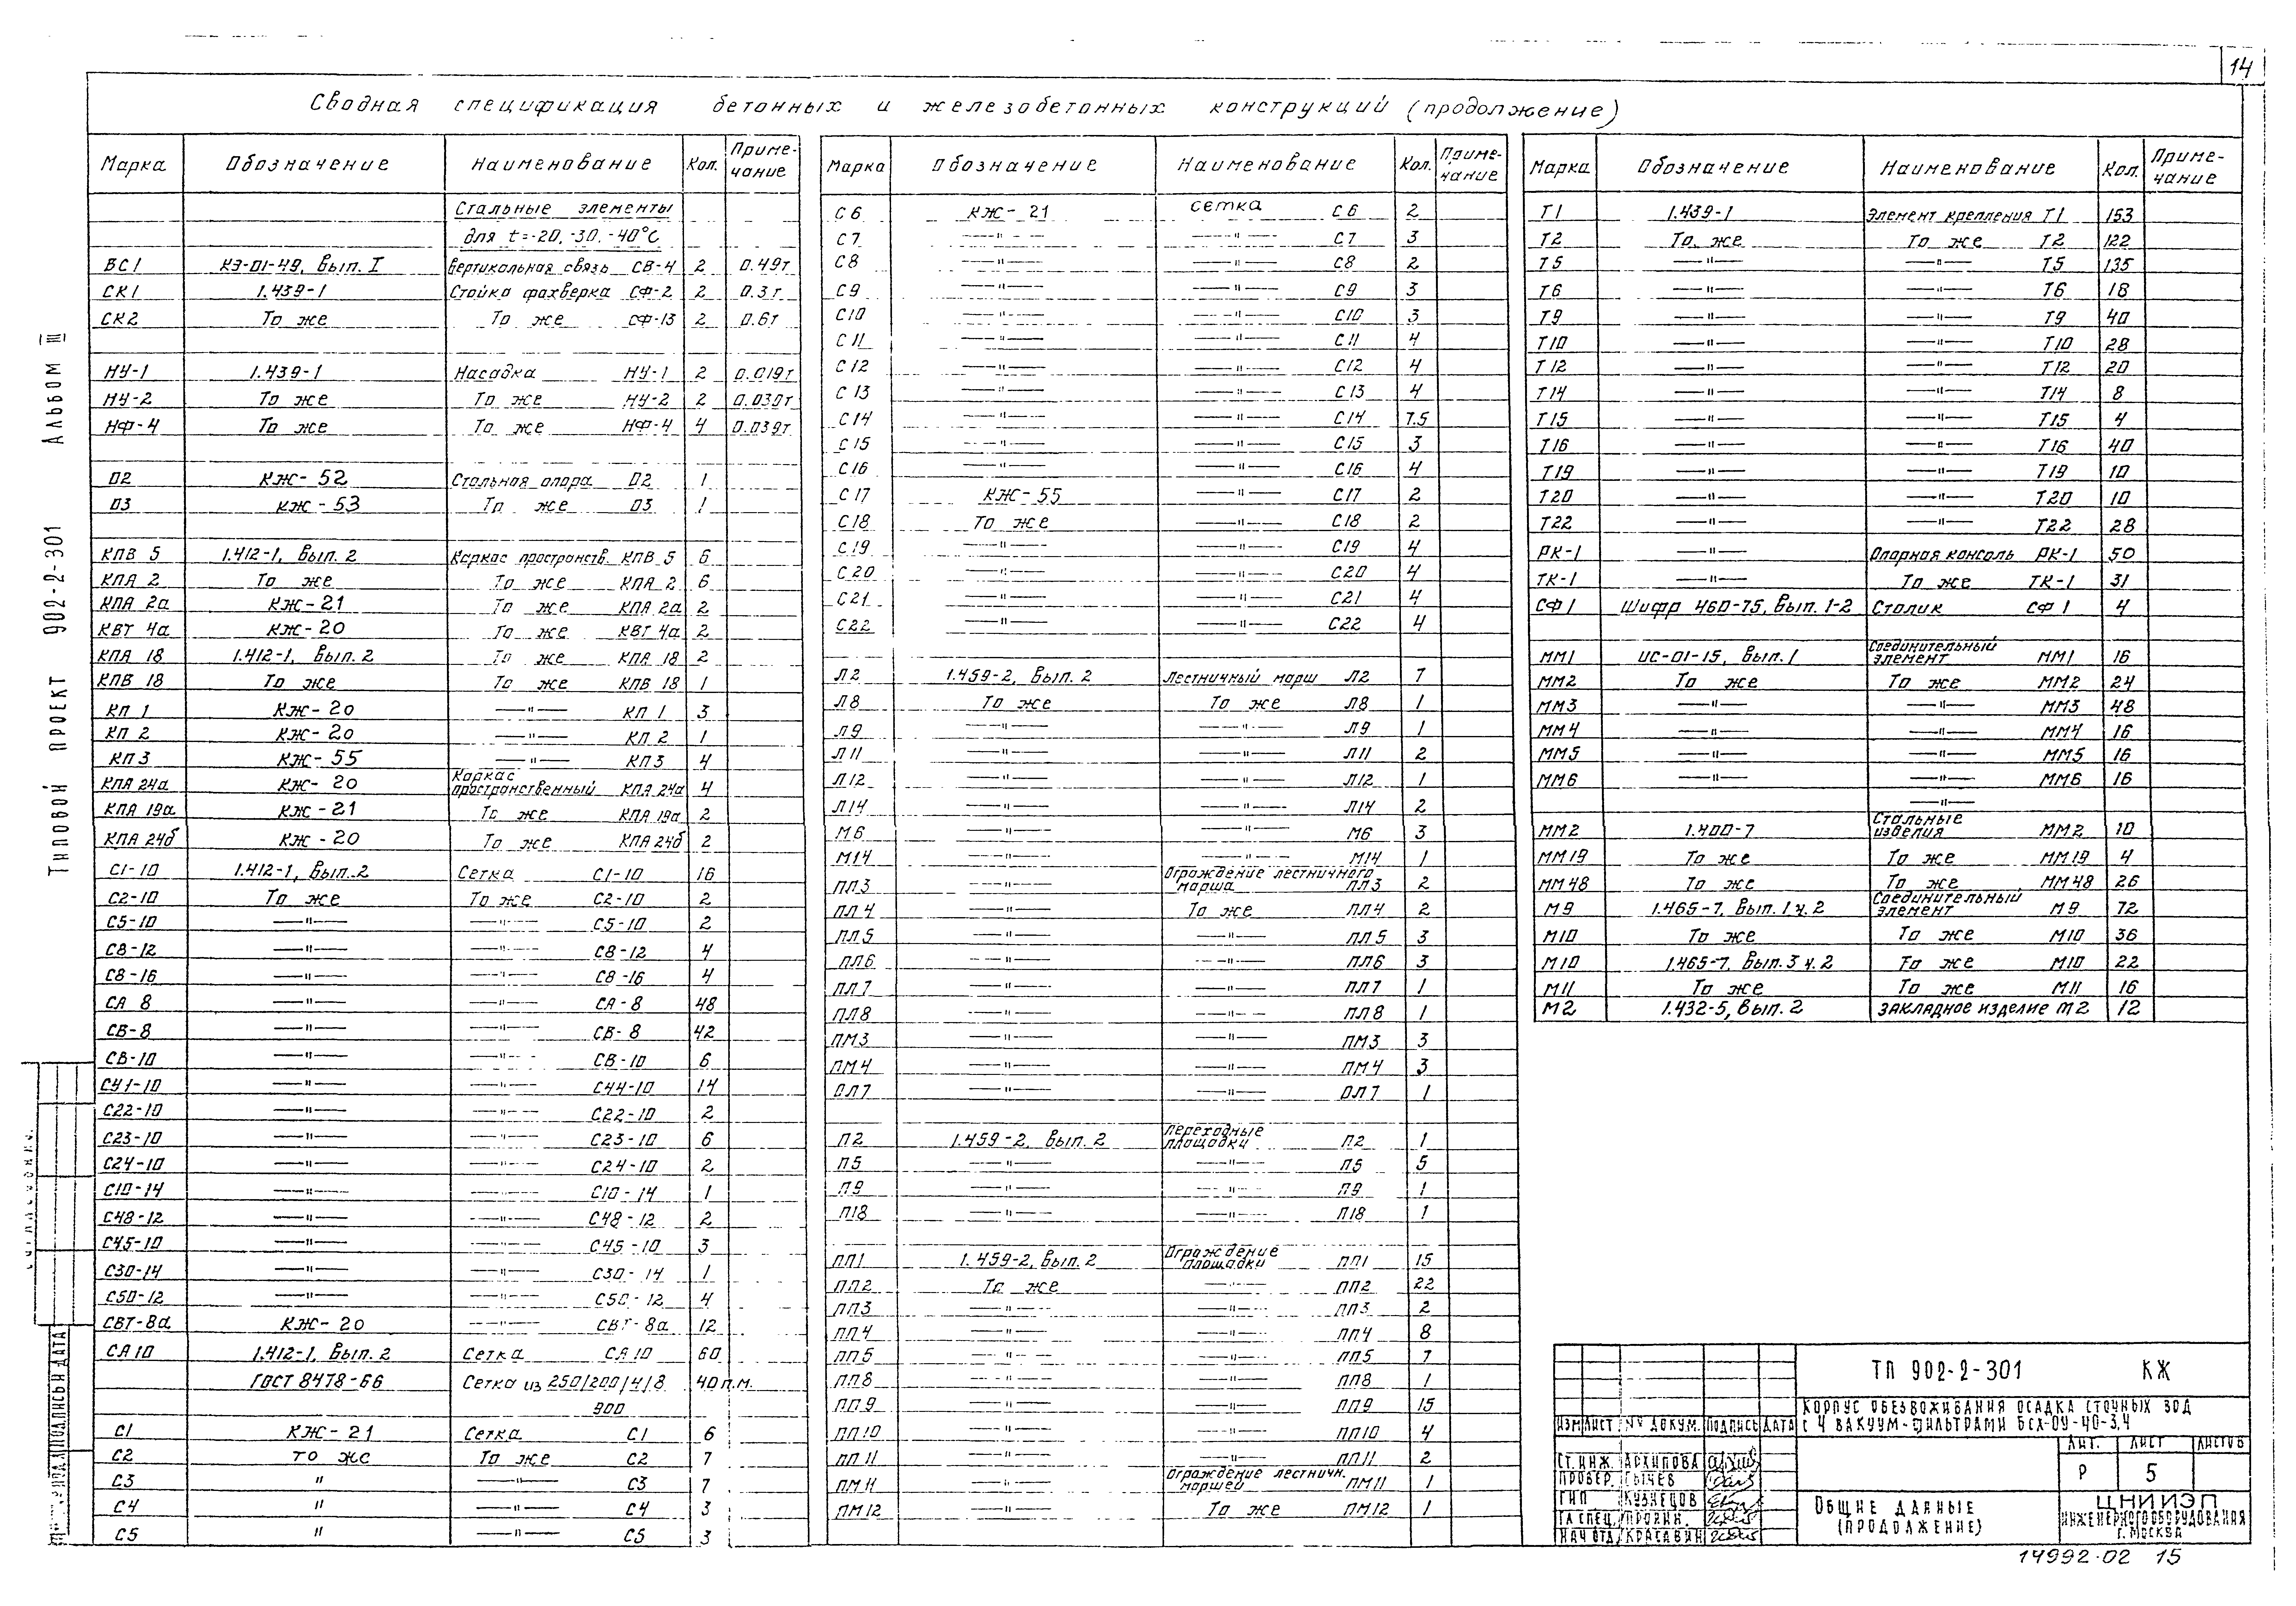 14
Сводная спецификация бетонных и железобетонных конструкций (продолжение)
Альбом III
Типовой проект 902-2-301
Марка Обозначение Наименование Кол. Приме-чание
Стальные элементы
для t=-20,-30,-40°С
ВС1 КЭ-01-49, Вып. I Вертикальная связь СВ-4 2 0.49т
СК1 1.439-1 Стойка фахверка СФ-2 2 0.3т
СК2 То же То же СФ-13 2 0.6т
НУ-1 1.439-1 Насадка НУ-1 2 0.019т
НУ-2 То же То же НУ-2 2 0.030т
НФ-4 То же То же НФ-4 4 0.039т
О2 КЖ-52 Стальная опора О2 1
О3 КЖ-53 То же О3 1
КПВ 5 1.412-1, Вып. 2 Каркас пространств. КПВ 5 6
КПА 2 То же То же КПА 2 6
КПА 2а КЖ-21 То же КПА 2а 2
КВТ 4а КЖ-20 То же КВТ 4а 2
КПА 18 1.412-1, Вып. 2 То же КПА 18 2
КПВ 18 То же То же КПВ 18 1
КП 1 КЖ-20 —"— КП 1 3
КП 2 КЖ-20 —"— КП 2 1
КП 3 КЖ-55 —"— КП 3 4
КПА 24а КЖ-20 Каркас пространственный КПА 24а 4
КПА 19а КЖ-21 То же КПА 19а 2
КПА 24б КЖ-20 То же КПА 24б 2
С1-10 1.412-1, Вып. 2 Сетка С1-10 16
С2-10 То же То же С2-10 2
С5-10 —"— —"— С5-10 2
С8-12 —"— —"— С8-12 4
С8-16 —"— —"— С8-16 4
СА 8 —"— —"— СА-8 48
СВ-8 —"— —"— СВ-8 42
СВ-10 —"— —"— СВ-10 6
С41-10 —"— —"— С44-10 14
С22-10 —"— —"— С22-10 2
С23-10 —"— —"— С23-10 6
С24-10 —"— —"— С24-10 2
С10-14 —"— —"— С10-14 1
С48-12 —"— —"— С48-12 2
С45-10 —"— —"— С45-10 3
С30-14 —"— —"— С30-14 1
С50-12 —"— —"— С50-12 4
СВТ-8а КЖ-20 —"— СВТ-8а 12
СА10 1.412-1, Вып. 2 Сетка СА10 60
ГОСТ 8478-66 Сетка из 250/200/4/8 40п.м.
900
С1 КЖ-21 Сетка С1 6
С2 То же То же С2 7
С3 " —"— С3 7
С4 " —"— С4 3
С5 " —"— С5 3
Марка Обозначение Наименование Кол. Приме-чание
С6 КЖ-21 сетка С6 2
С7 —"— —"— С7 3
С8 —"— —"— С8 2
С9 —"— —"— С9 3
С10 —"— —"— С10 3
С11 —"— —"— С11 4
С12 —"— —"— С12 4
С13 —"— —"— С13 4
С14 —"— —"— С14 7.5
С15 —"— —"— С15 3
С16 —"— —"— С16 4
С17 КЖ-55 —"— С17 2
С18 То же —"— С18 2
С19 —"— —"— С19 4
С20 —"— —"— С20 4
С21 —"— —"— С21 4
С22 —"— —"— С22 4
Л2 1.459-2, Вып. 2 Лестничный марш Л2 7
Л8 То же То же Л8 1
Л9 —"— —"— Л9 1
Л11 —"— —"— Л11 2
Л12 —"— —"— Л12 1
Л14 —"— —"— Л14 2
М6 —"— —"— М6 3
М14 —"— —"— М14 1
ПЛ3 —"— Ограждение лестничного марша ПЛ3 2
ПЛ4 —"— То же ПЛ4 2
ПЛ5 —"— —"— ПЛ5 3
ПЛ6 —"— —"— ПЛ6 3
ПЛ7 —"— —"— ПЛ7 1
ПЛ8 —"— —"— ПЛ8 1
ПМ3 —"— —"— ПМ3 3
ПМ4 —"— —"— ПМ4 3
ОЛ7 —"— —"— ОЛ7 1
П2 1.459-2, Вып. 2 Переходные площадки П2 1
П5 —"— —"— П5 5
П9 —"— —"— П9 1
П18 —"— —"— П18 1
ПП1 1.459-2, Вып. 2 Ограждение площадки ПП1 15
ПП2 То же —"— ПП2 22
ПП3 —"— —"— ПП3 2
ПП4 —"— —"— ПП4 8
ПП5 —"— —"— ПП5 7
ПП8 —"— —"— ПП8 1
ПП9 —"— —"— ПП9 15
ПП10 —"— —"— ПП10 4
ПП11 —"— —"— ПП11 2
ПМ11 —"— Ограждение лестничн. маршей ПМ11 1
ПМ12 —"— То же ПМ12 1
Марка Обозначение Наименование Кол. Приме-чание
Т1 1.439-1 Элемент крепления Т1 153
Т2 То же То же Т2 122
Т5 —"— —"— Т5 135
Т6 —"— —"— Т6 18
Т9 —"— —"— Т9 40
Т10 —"— —"— Т10 28
Т12 —"— —"— Т12 20
Т14 —"— —"— Т14 8
Т15 —"— —"— Т15 4
Т16 —"— —"— Т16 40
Т19 —"— —"— Т19 10
Т20 —"— —"— Т20 10
Т22 —"— —"— Т22 28
РК-1 —"— Опорная консоль РК-1 50
ТК-1 —"— То же ТК-1 31
СФ1 Шифр 460-75, Вып. 1-2 Столик СФ1 4
ММ1 ИС-01-15, Вып. 1 Соединительный элемент ММ1 16
ММ2 То же То же ММ2 24
ММ3 —"— —"— ММ3 48
ММ4 —"— —"— ММ4 16
ММ5 —"— —"— ММ5 16
ММ6 —"— —"— ММ6 16
—"—
ММ2 1.400-7 Стальные изделия ММ2 10
ММ19 То же То же ММ19 4
ММ48 То же То же ММ48 26
М9 1.465-7, Вып. 1 ч. 2 Соединительный элемент М9 72
М10 То же То же М10 36
М10 1.465-7, Вып. 3 ч. 2 То же М10 22
М11 То же То же М11 16
М2 1.432-5, Вып. 2 закладное изделие М2 12
ТП 902-2-301 КЖ
Корпус обезвоживания осадка сточных вод
с 4 вакуум-фильтрами БСХ-ОУ-40-3,4
Изм Лист № докум. Подпись Дата
Лит. Лист Листов
Р 5
Ст. инж. Архипова
Провер. Сычев
ГИП Кузнецов
Гл спец.
Нач отд. Красавин
Общие данные
(продолжение)
ЦНИИЭП
инженерного оборудования
г. Москва
14992-02 15